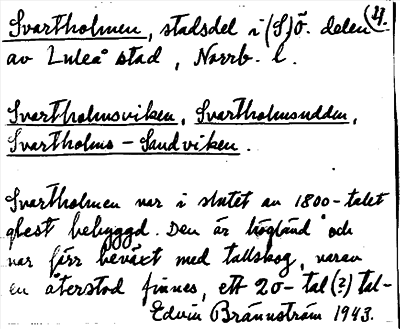 Svartholmen, stadsdel i (S)Ö. delen (4.
av Luleå stad, Norrb. l.
Svartholmsviken, Svartholmsudden,
Svartholms-Sandviken.
Svartholmen var i slutet av 1800-talet
glest bebyggd. Den är högländ och
var förr beväxt med tallskog, varav
en återstod finnes, ett 20-tal(?) tal-
Edvin Brännström 1943.